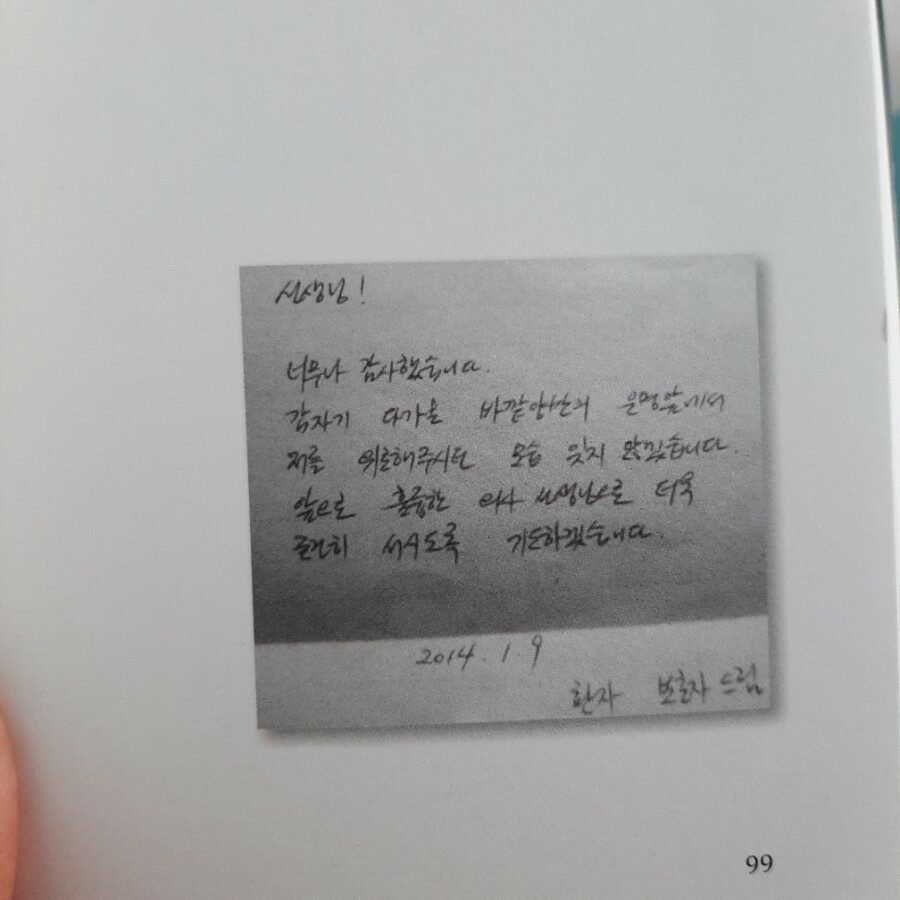 선생님!
너무나 감사했습니다.
갑자기 다가온 바깥양반의 운명앞에서
저를 위로해주시던 모습 잊지 않겠습니다.
앞으로 훌륭한 의사 선생님으로 더욱
굳건히 서시도록 기도하겠습니다.
2014.1.9
환자 보호자 드림
99